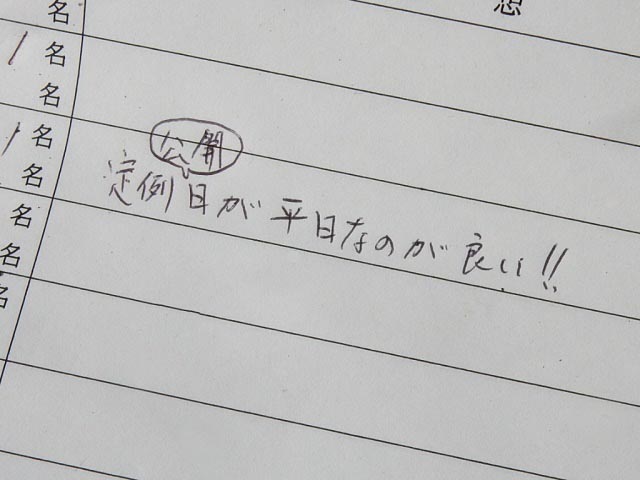 想
名
1名
名
1名
名
名
名
名
公開
定例日が平日なのが良い!!